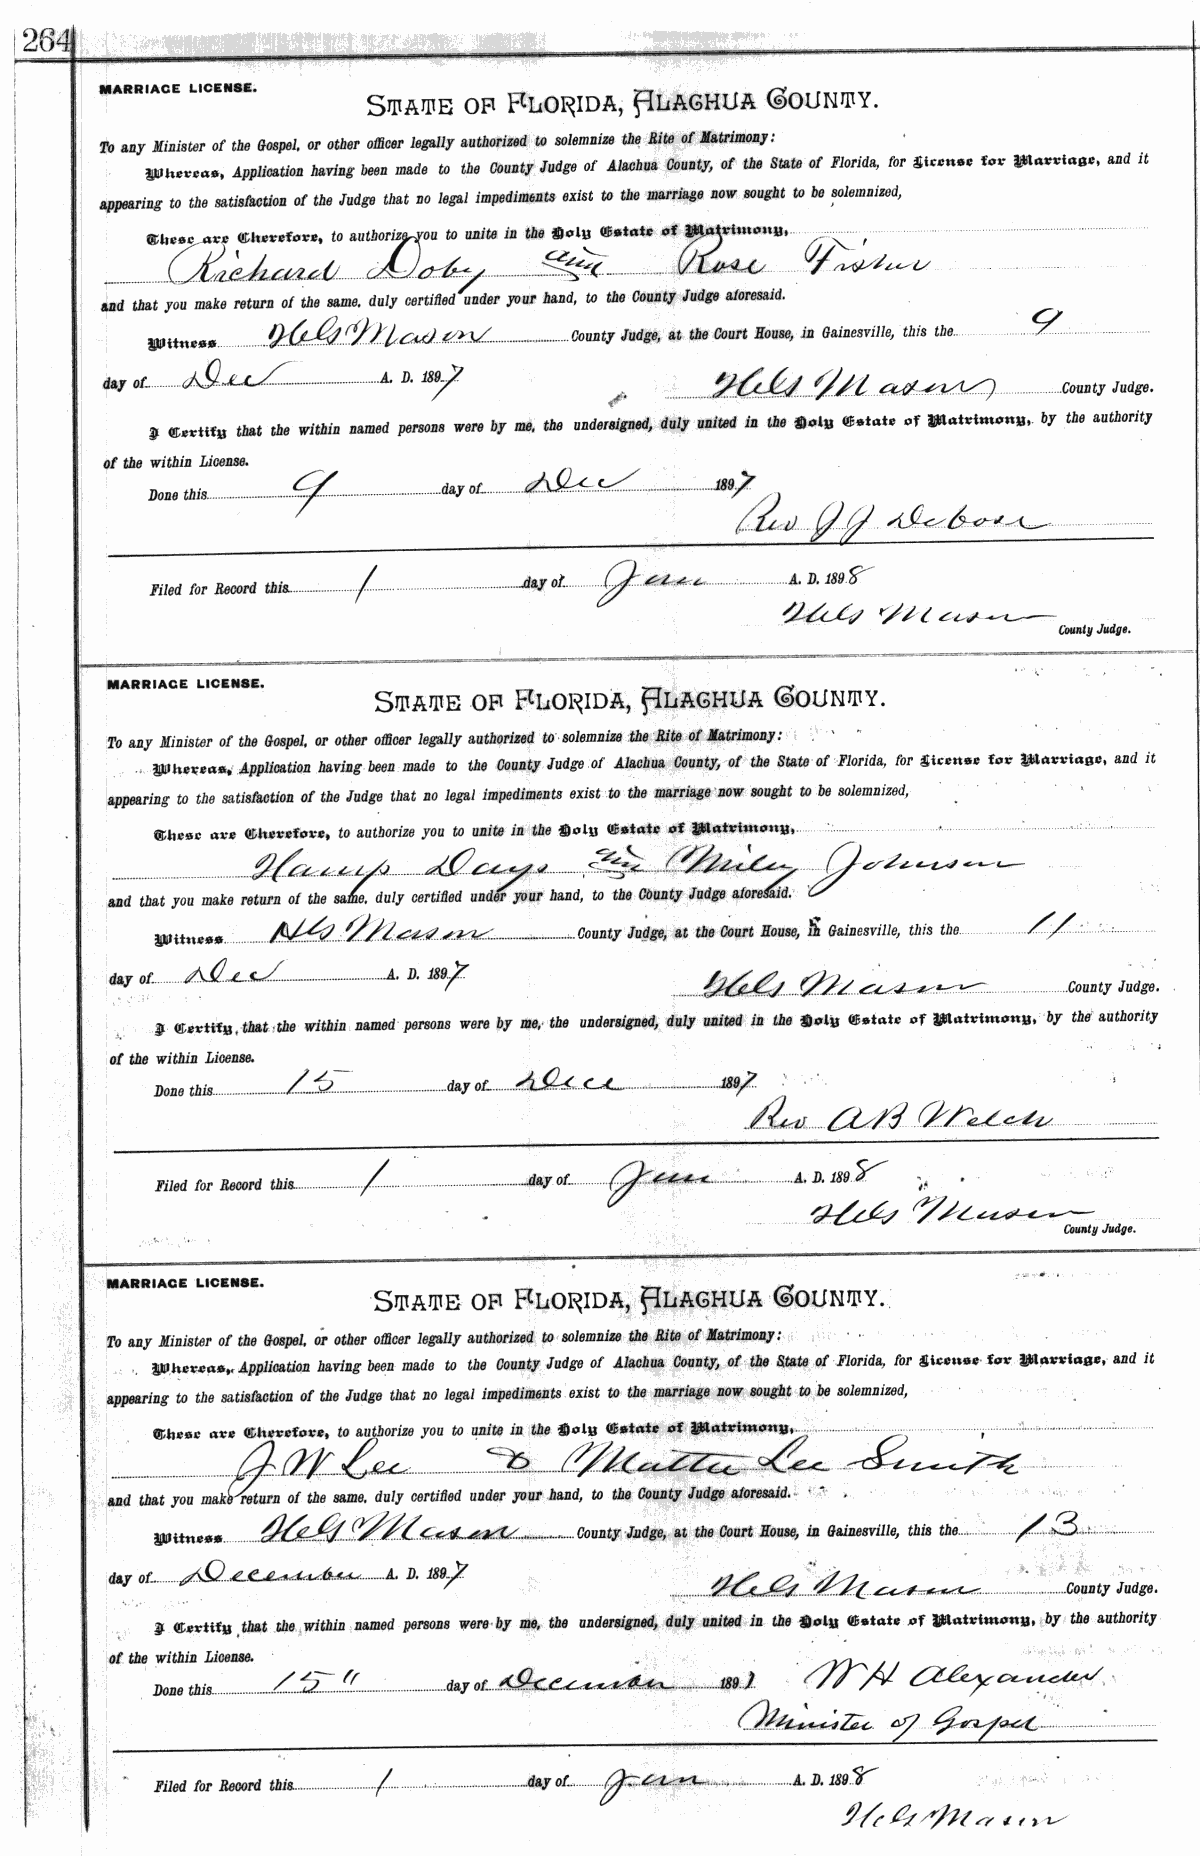 264
MARRIAGE LICENSE.
STATE OF FLORIDA, ALACHUA COUNTY.
To any Minister of the Gospel, or other officer legally authorized to solemnize the Rite of Matrimony:
Whereas, Application having been made to the County Judge of Alachua County, of the State of Florida, for License for Marriage, and it
appearing to the satisfaction of the Judge that no legal impediments exist to the marriage now sought to be solemnized,
These are Therefore, to authorize you to unite in the Holy Estate of Matrimony,
Richard Doby and Rose Fisher
and that you make return of the same, duly certified under your hand, to the County Judge aforesaid.
Witness Mason County Judge, at the Court House, in Gainesville, this the 9
day of Dec A. D. 1897 Mason County Judge.
I Certify that the within named persons were by me, the undersigned, duly united in the Holy Estate of Matrimony, by the authority
of the within License.
Done this 9 day of Dec 1897
Rev J J Debose
Filed for Record this 1 day of Jan A. D. 1898
Mason
County Judge.
MARRIAGE LICENSE.
STATE OF FLORIDA, ALACHUA COUNTY.
To any Minister of the Gospel, or other officer legally authorized to solemnize the Rite of Matrimony:
Whereas, Application having been made to the County Judge of Alachua County, of the State of Florida, for License for Marriage, and it
appearing to the satisfaction of the Judge that no legal impediments exist to the marriage now sought to be solemnized,
These are Therefore, to authorize you to unite in the Holy Estate of Matrimony,
Hamp Days and Johnson
and that you make return of the same, duly certified under your hand, to the County Judge aforesaid.
Witness Mason County Judge, at the Court House, in Gainesville, this the 11
day of Dec A. D. 1897 Mason County Judge.
I Certify, that the within named persons were by me, the undersigned, duly united in the Holy Estate of Matrimony, by the authority
of the within License.
Done this 15 day of Dece 1897
Rev A B Welch
Filed for Record this 1 day of Jan A. D. 1898
Mason
County Judge.
MARRIAGE LICENSE.
STATE OF FLORIDA, ALACHUA COUNTY.
To any Minister of the Gospel, or other officer legally authorized to solemnize the Rite of Matrimony:
Whereas, Application having been made to the County Judge of Alachua County, of the State of Florida, for License for Marriage, and it
appearing to the satisfaction of the Judge that no legal impediments exist to the marriage now sought to be solemnized,
These are Therefore, to authorize you to unite in the Holy Estate of Matrimony,
J W Lee & Mattie Lee Smith
and that you make return of the same, duly certified under your hand, to the County Judge aforesaid.
Witness Mason County Judge, at the Court House, in Gainesville, this the 13
day of December A. D. 1897 Mason County Judge.
I Certify that the within named persons were by me, the undersigned, duly united in the Holy Estate of Matrimony, by the authority
of the within License.
Done this 15" day of December 1897 W H Alexander
Minister of Gospel
Filed for Record this 1 day of Jan A. D. 1898
Mason